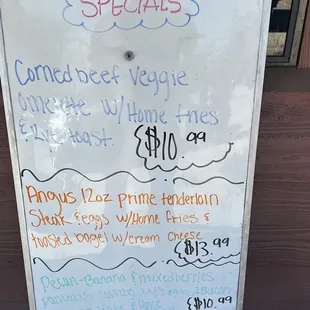 SPECIALS
Corned beef Veggie
omelette w/Home fries
& Rye toast.
$10.99
Angus 12oz prime tenderloin
Steak & eggs w/Home fries &
toasted bagel w/cream cheese
$13.99
Pecan-Banana & mixed berries
$10.99